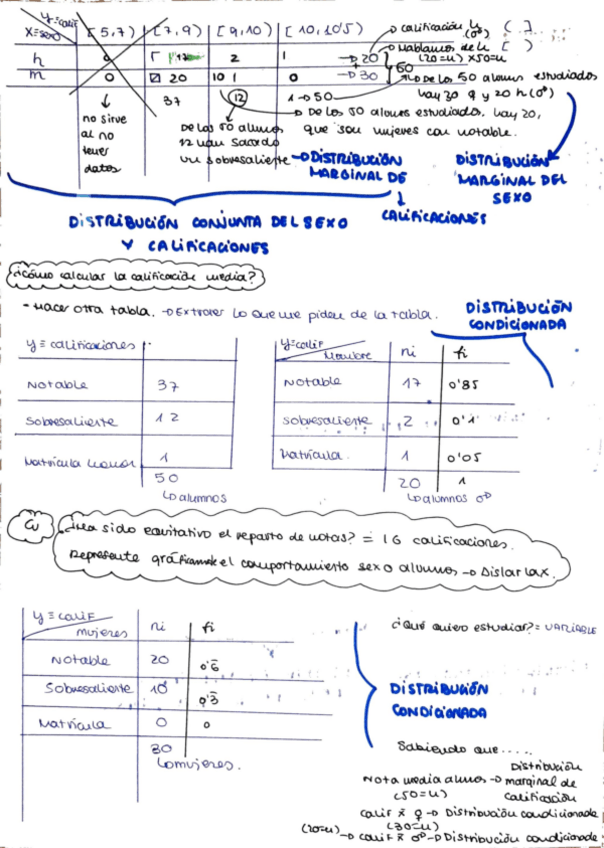 Y≡calif
X≡sexo
[5,7) [7,9) [9,10) [10,10'5)
h 0 17 2 1 → 20
m 0 20 10 1 0 → 30
37 12 1 → 50
→ calificación
→ Hablamos de
(20=n) x50=n
50
→ De los 50 alumnos estudiados
hay 30 ♀ y 20 h (♂)
no sirve
al no
tener
datos
De los 50 alumnos
12 han sacado
un sobresaliente
→ De los 50 alumnos estudiados, hay 20,
que son mujeres con notable.
→ DISTRIBUCIÓN
MARGINAL DE
CALIFICACIONES
DISTRIBUCIÓN
MARGINAL DEL
SEXO
DISTRIBUCIÓN CONJUNTA DEL SEXO
Y CALIFICACIONES
¿Cómo calcular la calificación media?
- Hacer otra tabla. → Extraer lo que me piden de la tabla.
DISTRIBUCIÓN
CONDICIONADA
Y≡calificaciones
Notable 37
Sobresaliente 12
Matrícula honor 1
50
↳ alumnos
Y≡calif
Hombre ni fi
Notable 17 0'85
Sobresaliente 2 0'1
Matrícula 1 0'05
20 1
↳ alumnos ♂
¿Ha sido equitativo el reparto de notas? = IG calificaciones.
Represente gráficamente el comportamiento sexo alumnos → Aislar la x.
Y≡calif
mujeres ni fi
Notable 20 0'6
Sobresaliente 10 0'3
Matrícula 0 0
30
↳ mujeres.
¿Qué quiero estudiar? = VARIABLE
DISTRIBUCIÓN
CONDICIONADA
Sabiendo que.....
Nota media alumnos → Distribución marginal de calificación
(50=n)
calif x̄ ♀ → Distribución condicionada
(30=n)
(20=n) → calif x̄ ♂ → Distribución condicionada